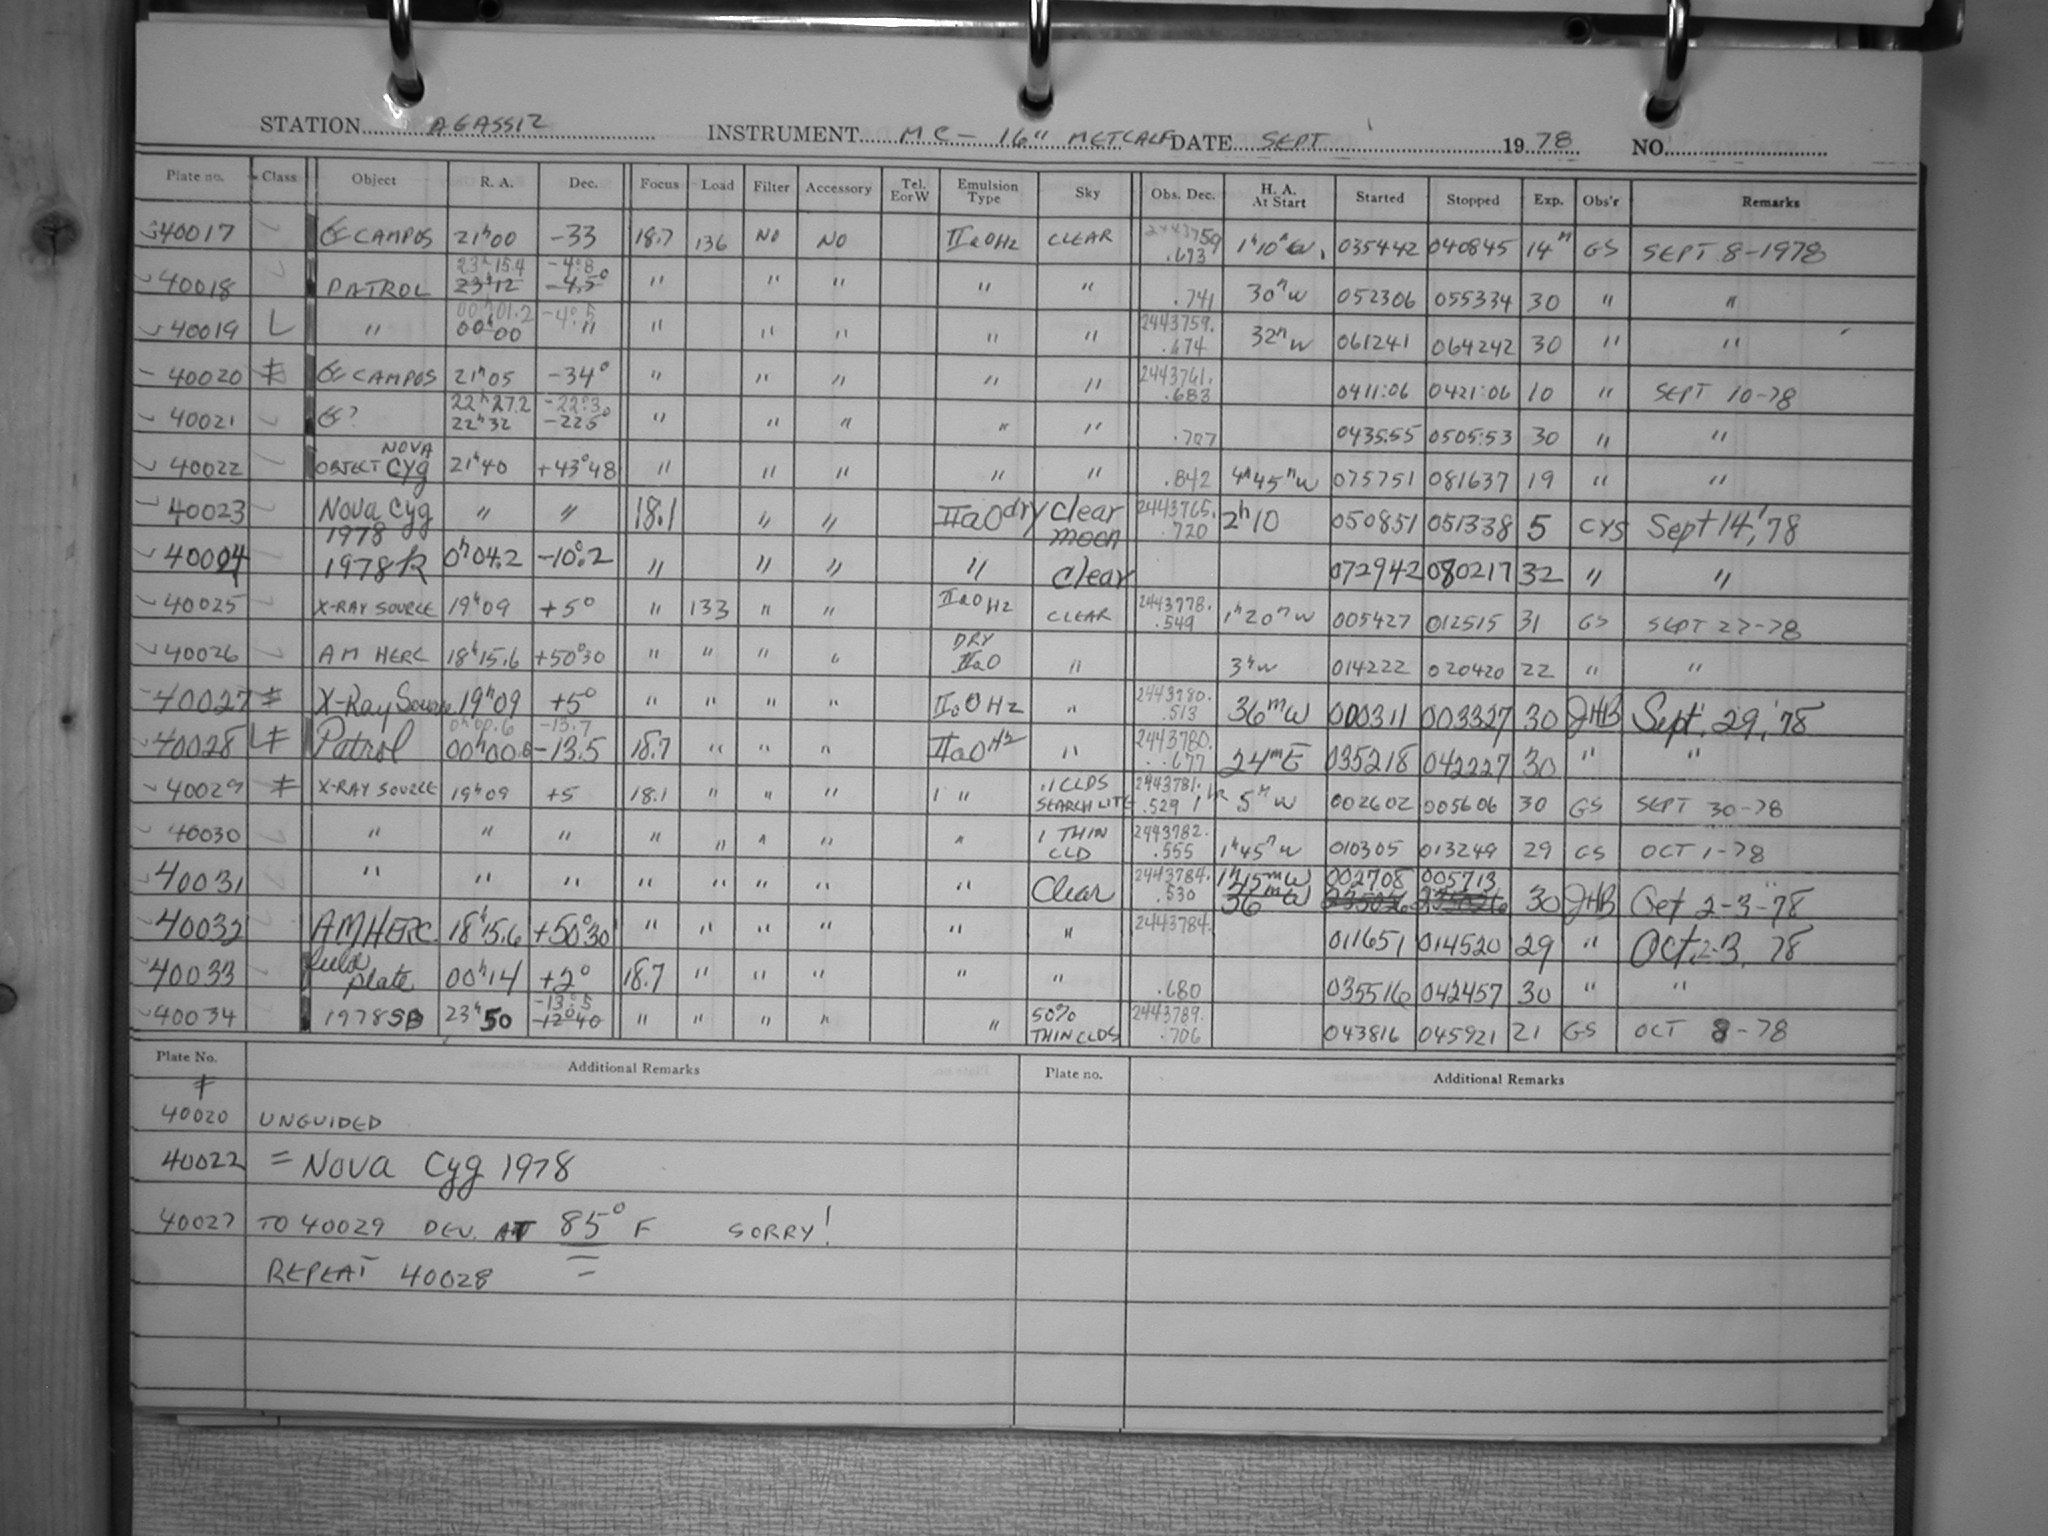 STATION AGASSIZ INSTRUMENT MC - 16" METCALF DATE SEPT 1978 NO.
Plate no. Class Object R. A. Dec. Focus Load Filter Accessory Tel. E or W Emulsion Type Sky Obs. Dec. H. A. At Start Started Stopped Exp. Obs'r Remarks
40017 CAMPOS 21h00 -33 18.7 136 NO NO IIaOH2 CLEAR 2443759 .673 1h10m W. 035442 040845 14m GS SEPT 8-1978
40018 PATROL 23h15.4 23h12 -4°.8 -4.5° " " " " " .741 30m W 052306 055334 30 " "
40019 L " 00h01.2 00h00 -4°.5 " " " " " " 2443759. .674 32m W 061241 064242 30 " "
40020 ‡ CAMPOS 21h05 -34° " " " " " 2443761. .683 0411:06 0421:06 10 " SEPT 10-78
40021 ? 22h27.2 22h32 -22°.3 -22.5° " " " " " .707 0435:55 0505:53 30 " "
40022 OBJECT NOVA CYG 21h40 +43°48 " " " " " .842 4h45m W 075751 081637 19 " "
40023 Nova Cyg 1978 " " 18.1 " " IIaO dry clear moon 2443765. .720 2h10 050851 051338 5 CYS Sept 14, '78
40024 1978 R 0h04.2 -10°.2 " " " " Clear 072942 080217 32 " "
40025 X-RAY SOURCE 19h09 +5° " 133 " " IIaOH2 CLEAR 2443778. .549 1h20m W 005427 012515 31 GS SEPT 27-78
40026 AM HERC 18h15.6 +50°30 " " " " DRY IIaO " 3h W 014222 020420 22 " "
40027 ‡ X-Ray Source 19h09 +5° " " " " IIaOH2 " 2443780. .513 36m W 000311 003327 30 JHB Sept. 29, '78
40028 L‡ Patrol 0h00.6 00h00.6 -13.7 -13.5 18.7 " " " IIaOH2 " 2443780. .677 24m E 035218 042227 30 " "
40029 ‡ X-RAY SOURCE 19h09 +5 18.1 " " " " .1 CLDS SEARCHLITE 2443781. .529 1hr 5m W 002602 005606 30 GS SEPT 30-78
40030 " " " " " " " " 1 THIN CLD 2443782. .555 1h45m W 010305 013249 29 GS OCT 1-78
40031 " " " " " " " " Clear 2443784. .530 1h15m W 36m W 002708 005713 30 JHB Oct 2-3-78
40032 AM HERC. 18h15.6 +50°30 " " " " " " 2443784. 011651 014520 29 " Oct. 2-3, 78
40033 field plate 00h14 +2° 18.7 " " " " " .680 035516 042457 30 " "
40034 1978 SB 23h50 -13°.5 -12°40 " " " " " 50% THIN CLDS 2443789. .706 043816 045921 21 GS OCT 8-78
Plate No. Additional Remarks Plate no. Additional Remarks
‡
40020 UNGUIDED
40022 = Nova Cyg 1978
40027 TO 40029 DEV. AT 85° F SORRY!
REPEAT 40028